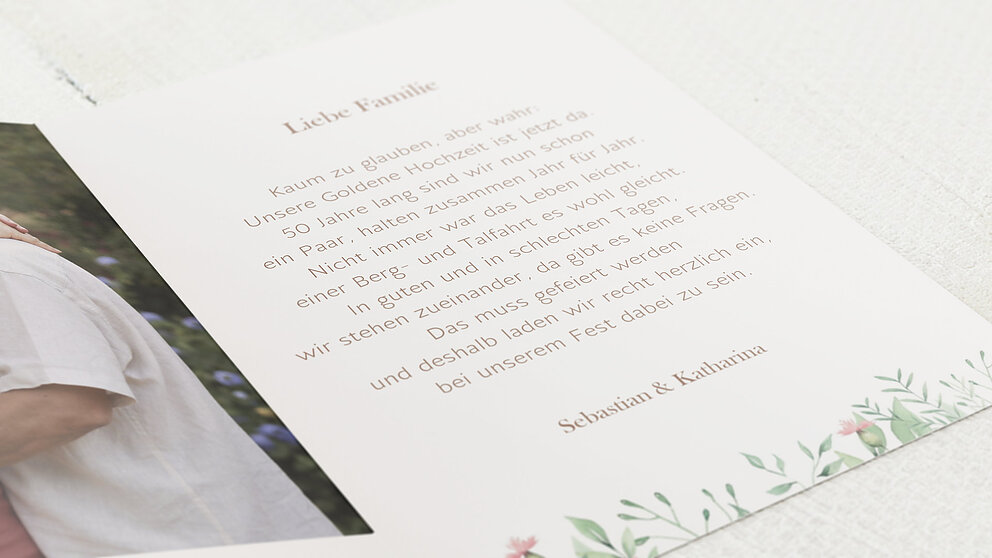 Liebe Familie
Kaum zu glauben, aber wahr:
Unsere Goldene Hochzeit ist jetzt da.
50 Jahre lang sind wir nun schon
ein Paar, halten zusammen Jahr für Jahr.
Nicht immer war das Leben leicht,
einer Berg- und Talfahrt es wohl gleicht.
In guten und in schlechten Tagen,
wir stehen zueinander, da gibt es keine Fragen.
Das muss gefeiert werden
und deshalb laden wir recht herzlich ein,
bei unserem Fest dabei zu sein.
Sebastian & Katharina